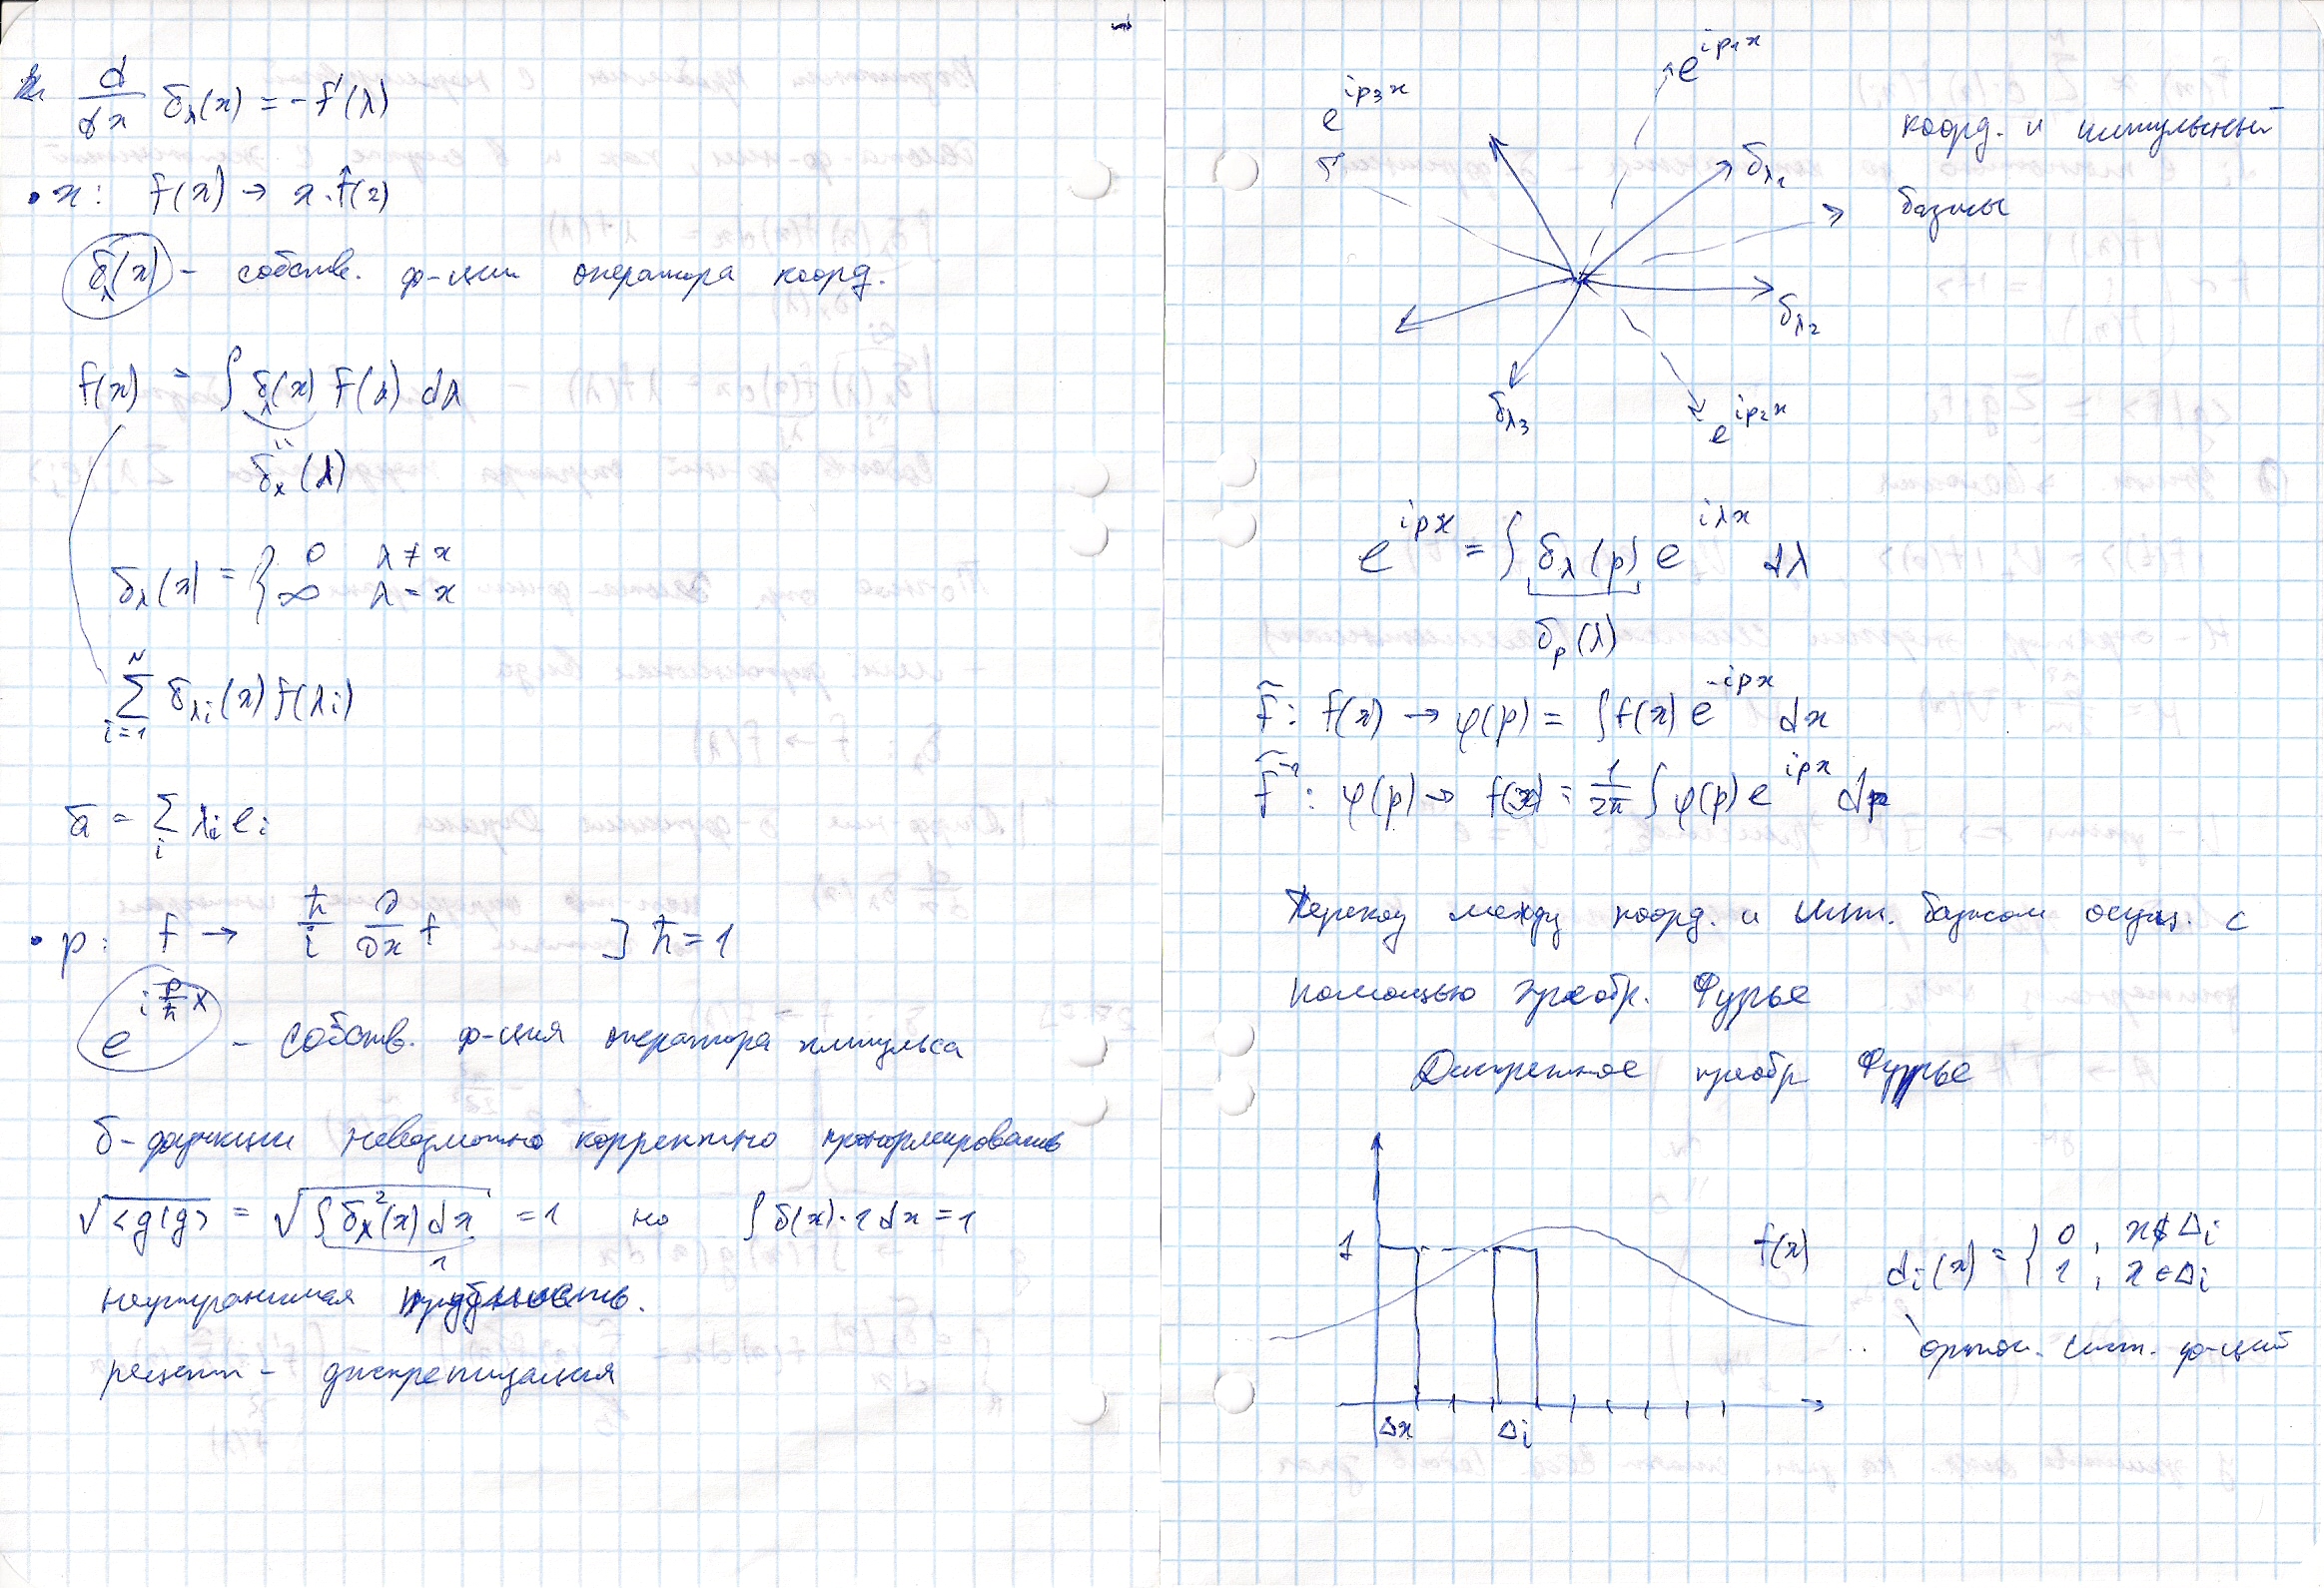 d/dx δ_λ(x) = -f'(λ)
• x: f(x) → x·f(x)
δ_λ(x) - собств. ф-ции оператора коорд.
f(x) = ∫ δ_λ(x) f(λ) dλ
"
δ_x(λ)
δ_λ(x) = { 0 λ ≠ x
∞ λ = x
N
Σ δ_λi(x) f(λi)
i=1
ā = Σ_i λi ei
• p: f → ħ/i ∂/∂x f ] ħ = 1
e^{i p/ħ x} - собств. ф-ция оператора импульса
δ-функции невозможно корректно пронормировать
√<g|g> = √∫ δ_λ²(x) dx = 1 но ∫ δ(x)·1 dx = 1
1
неустранимая трудность.
рецепт - дискретизация
e^{ip₁x}
e^{ip₃x}
коорд. и импульсный
δ_λ₁
базисы
δ_λ₂
δ_λ₃
e^{ip₂x}
e^{ipx} = ∫ δ_λ(p) e^{iλx} dλ
δ_p(λ)
F̃: f(x) → φ(p) = ∫ f(x) e^{-ipx} dx
F̃⁻¹: φ(p) → f(x) = 1/2π ∫ φ(p) e^{ipx} dp
Переход между коорд. и имп. базисом осущ. с
помощью преобр. Фурье
Дискретное преобр Фурье
1
f(x)
d_i(x) = { 0, x∉Δi
1, x∈Δi
ортон. сист. ф-ций
Δx Δi